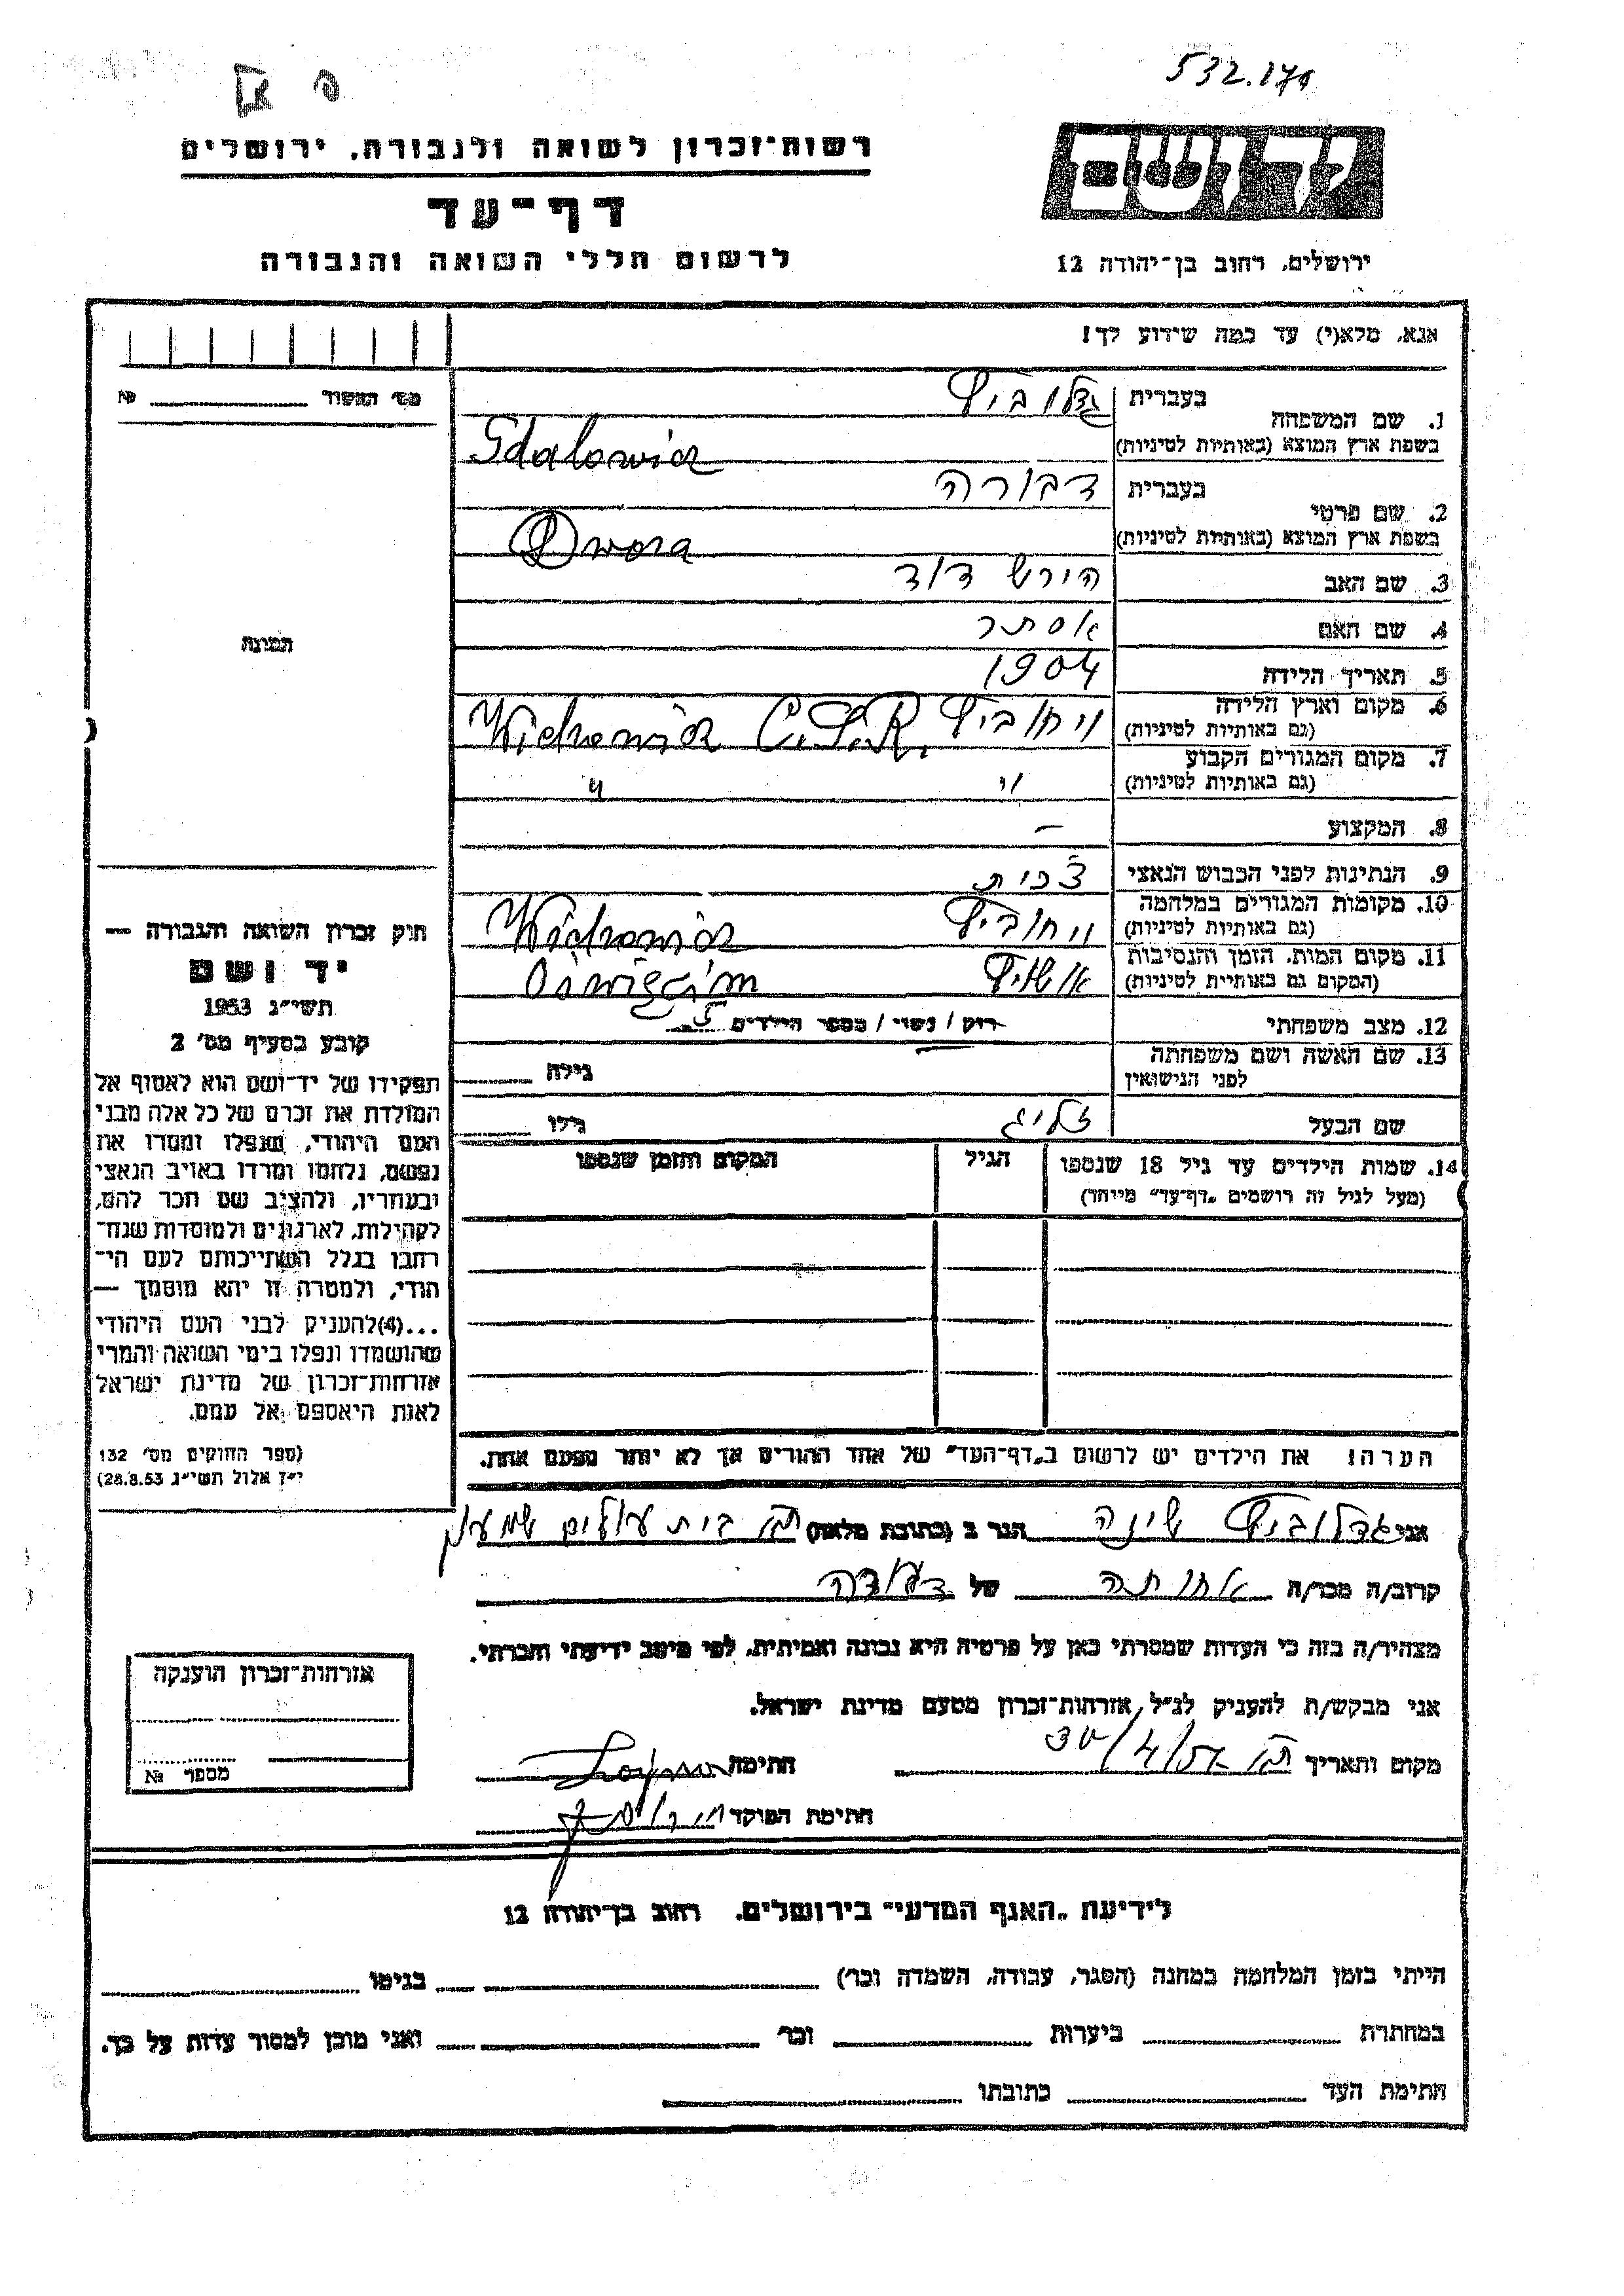 532.174
רשות־זכרון לשואה ולגבורה, ירושלים
דף־עד
לרשום חללי השואה והגבורה
יד ושם
ירושלים, רחוב בן־יהודה 12
אנא, מלא(י) עד כמה שידוע לך!
מס׳ התשור № 
1. שם המשפחה בעברית גדלוביץ
בשפת ארץ המוצא (באותיות לטיניות) Gdalowicz
2. שם פרטי בעברית דבורה
בשפת ארץ המוצא (באותיות לטיניות) Dwora
3. שם האב הירש דוד
4. שם האם אסתר
5. תאריך הלידה 1904
6. מקום וארץ הלידה (גם באותיות לטיניות) ויחוביץ Wichowicz Č.S.R.
7. מקום המגורים הקבוע (גם באותיות לטיניות) " "
8. המקצוע —
9. הנתינות לפני הכבוש הנאצי צ'כית
10. מקומות המגורים במלחמה (גם באותיות לטיניות) ויחוביץ Wichowicz
11. מקום המות, הזמן והנסיבות (המקום גם באותיית לטיניות) אושויץ Oświęcim
12. מצב משפחתי רוק / נשוי / מספר הילדים 5
13. שם האשה ושם משפחתה לפני הנישואין גילה
שם הבעל זליג גילו
14. שמות הילדים עד גיל 18 שנספו הגיל המקום והזמן שנספו
(מעל לגיל זה רושמים „דף־עד״ מיוחד)
הערה! את הילדים יש לרשום ב„דף־העד״ של אחד ההורים אך לא יותר מפעם אחת.
התמונה
חוק זכרון השואה והגבורה —
יד ושם
תשי״ג 1953
קובע בסעיף מס׳ 2
תפקידו של יד־ושם הוא לאסוף אל
המולדת את זכרם של כל אלה מבני
העם היהודי, שנפלו ומסרו את
נפשם, נלחמו ומרדו באויב הנאצי
ובעוזריו, ולהציב שם וזכר להם,
לקהילות, לארגונים ולמוסדות שנח־
רחבו בגלל השתייכותם לעם הי־
הודי, ולמטרה זו יהא מוסמך —
...(4)להעניק לבני העם היהודי
שהושמדו ונפלו בימי השואה והמרי
אזרחות־זכרון של מדינת ישראל
לאות היאספם אל עמם.
(ספר החוקים מס׳ 132
י״ז אלול תשי״ג 28.8.53)
אני גדלוביץ שינה הגר ב (כתובת מלאה) בית עולים שמעון
קרוב/ה מכר/ה אחותה של דבורה
מצהיר/ה בזה כי העדות שמסרתי כאן על פרטיה היא נכונה ואמיתית, לפי מיטב ידיעתי והכרתי.
אני מבקש/ת להעניק לנ״ל אזרחות־זכרון מטעם מדינת ישראל.
מקום ותאריך חתימה
חתימת הפוקד
אזרחות־זכרון הוענקה
מספר №
לידיעת „האגף המדעי״ בירושלים, רחוב בן־יהודה 12
הייתי בזמן המלחמה במחנה (הסגר, עבודה, השמדה וכר׳) בגיטו
במחתרת ביערות וכר׳ ואני מוכן למסור עדות על כך.
חתימת העד כתובתו